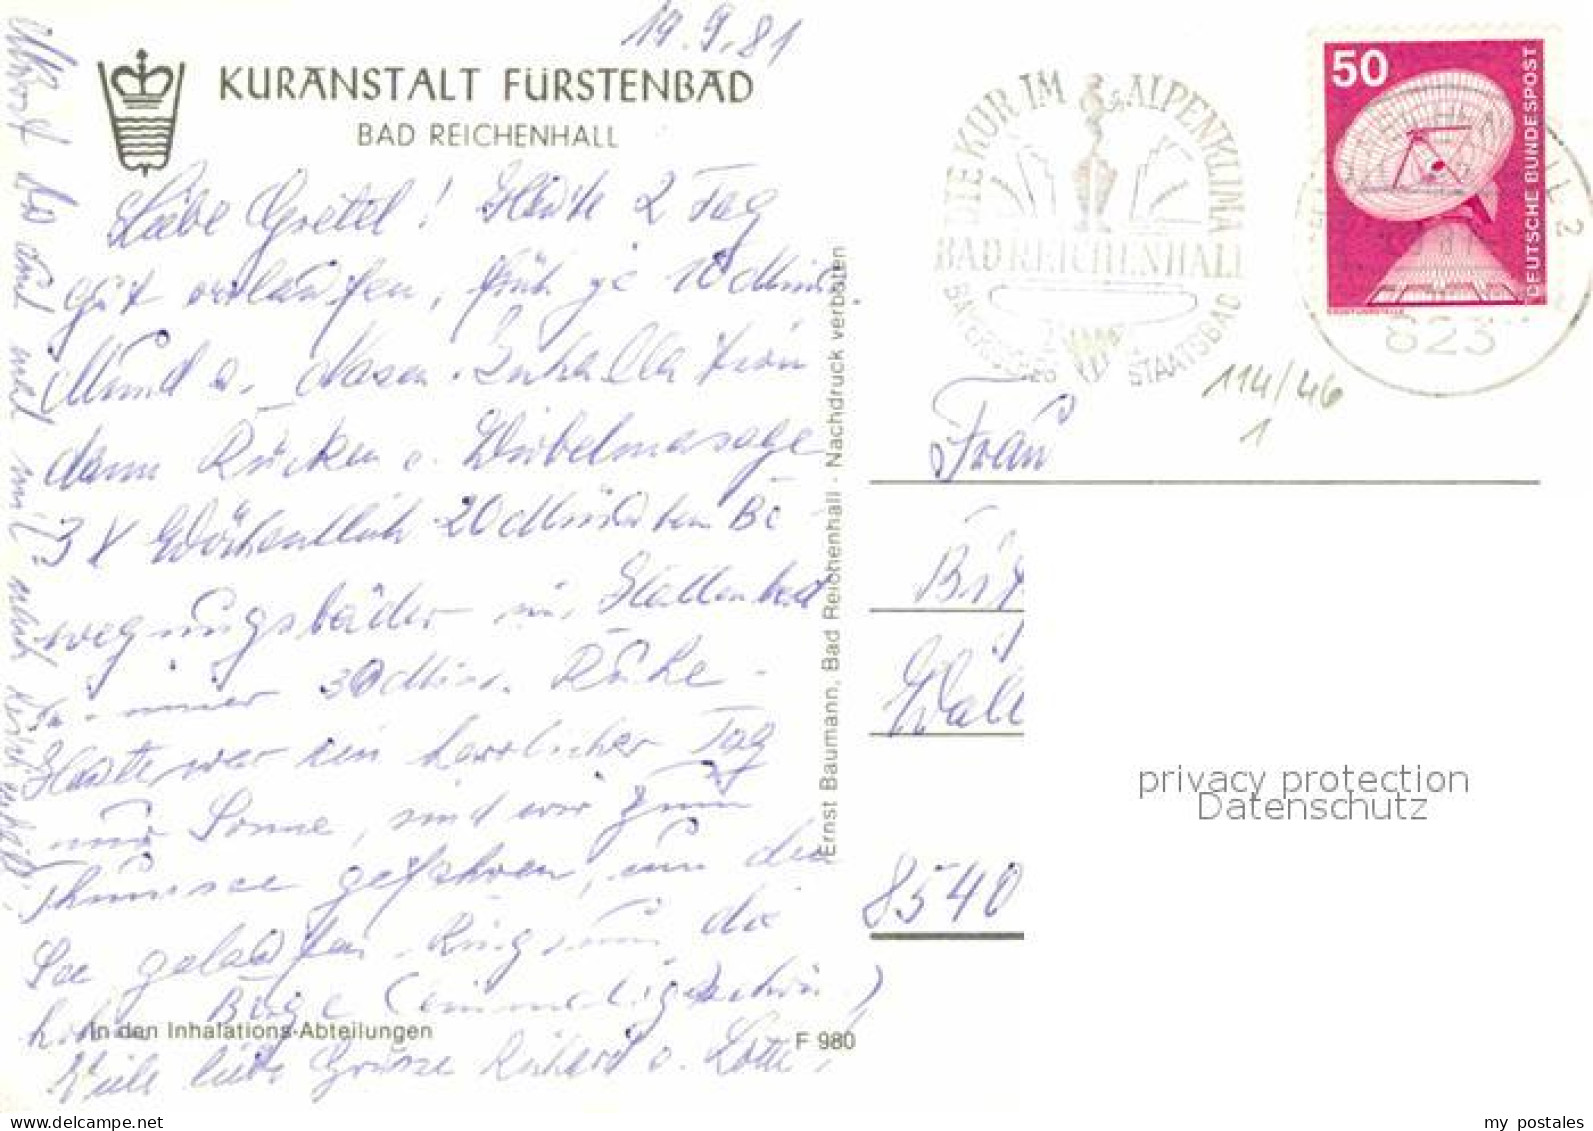 19.9.81
KURANSTALT FÜRSTENBAD
BAD REICHENHALL
Liebe Gretel! Heute 2 Tag
gut verlaufen, früh je 10 Minu.
Mund u. Nasen. Inhallation
dann Rücken u. Wirbelmasage
3 X Wöchentlich 20 Minuten Be-
wegungsbäder im Hallenbad
immer 30 Min. Ruhe.
Heute war ein herrlicher Tag
nur Sonne, sind wir zum
Thumsee gefahren, um den
See gelaufen. Ringsum die
hohen Berge (einmalig schön)
Viele liebe Grüsse Richard u. Lotte
In den Inhalations-Abteilungen
F 980
Ernst Baumann, Bad Reichenhall - Nachdruck verboten
DIE KUR IM ALPENKLIMA
BAD REICHENHALL
BAYERISCHES STAATSBAD
50
DEUTSCHE BUNDESPOST
823
114/46
1
Frau
Wall
8540
privacy protection
Datenschutz
my postales